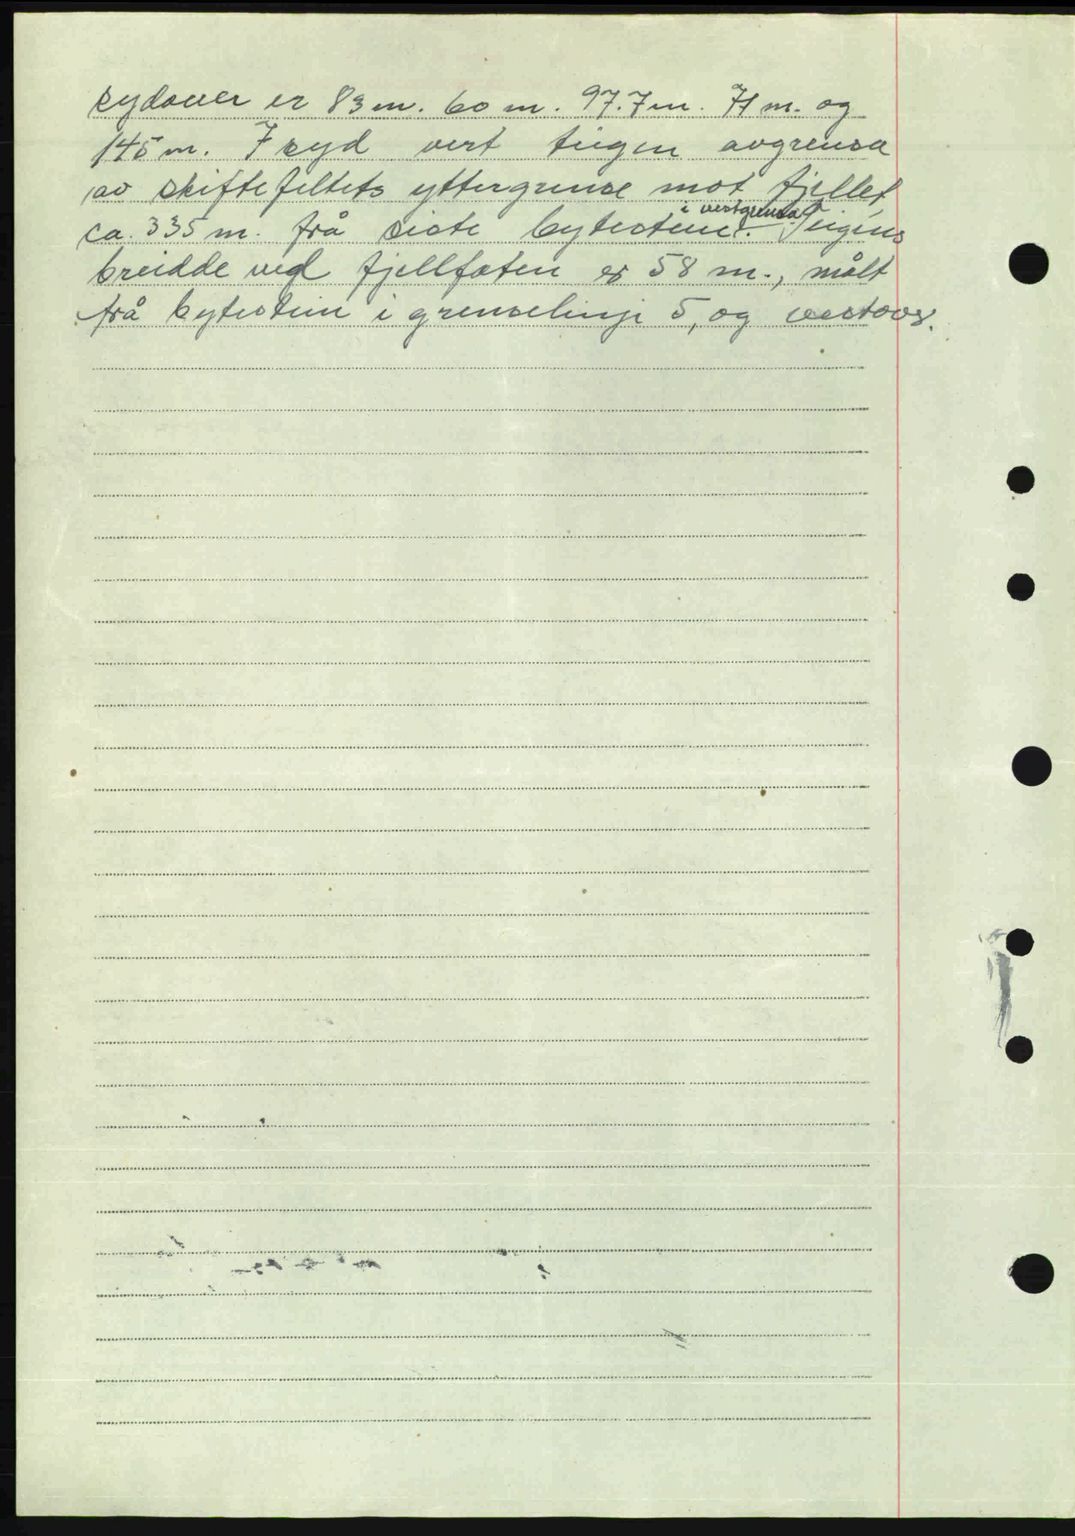 sydover er 83 m. 60 m. 97.7 m. 71 m. og
145 m. I syd vert teigen avgrensa
av skiftefeltets yttergrense mot fjellet,
ca. 335 m. frå siste bytestein i vestgrensa. Teigens
breidde ved fjellfoten er 58 m., målt
frå bytestein i grenselinje 5, og vestover.